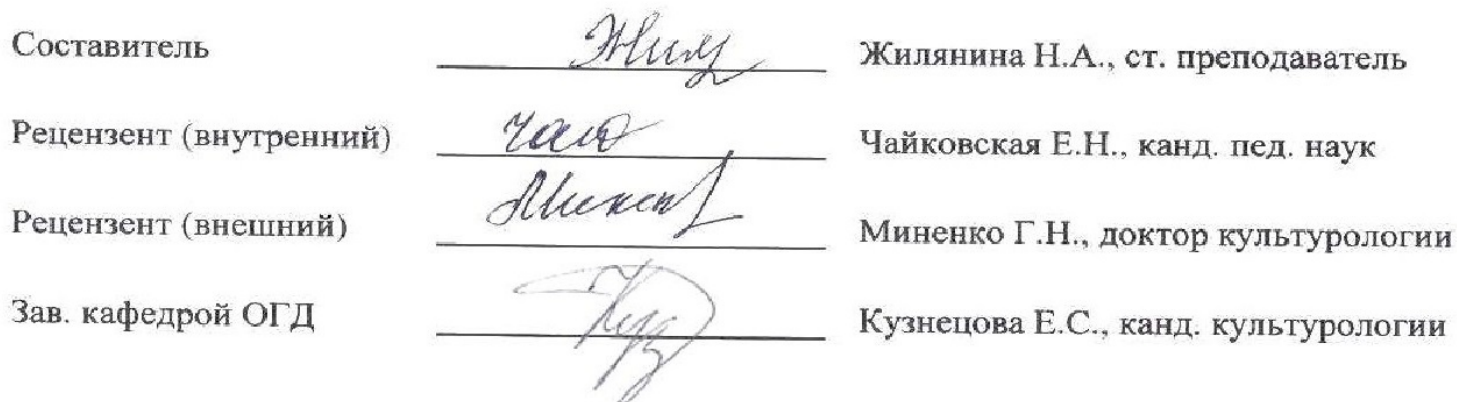 Составитель Жилянина Н.А., ст. преподаватель
Рецензент (внутренний) Чайковская Е.Н., канд. пед. наук
Рецензент (внешний) Миненко Г.Н., доктор культурологии
Зав. кафедрой ОГД Кузнецова Е.С., канд. культурологии